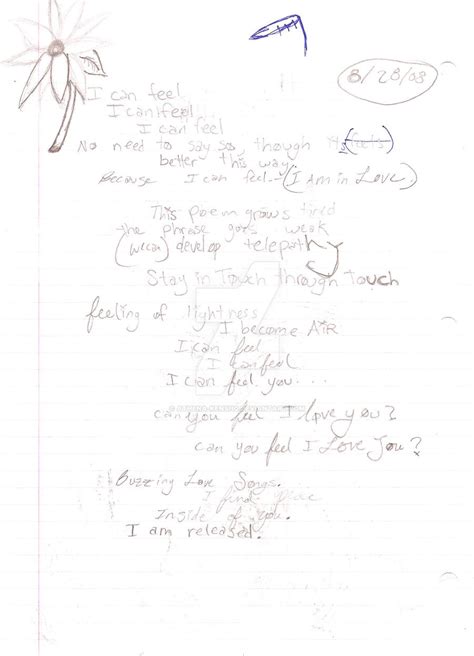 8/28/08
I can feel
I can feel
I can feel
No need to say so, though its (feels)
better this way
Because I can feel - (I Am in Love.)
This poem grows tired
the phrase goes weak
(we can) develop telepathy
Stay in Touch through touch
feeling of lightness
I become AiR
I can feel
I can feel
I can feel you....
can you feel I love you?
can you feel I Love You?
Buzzing Love Songs.
I find
Inside of you.
I am released.